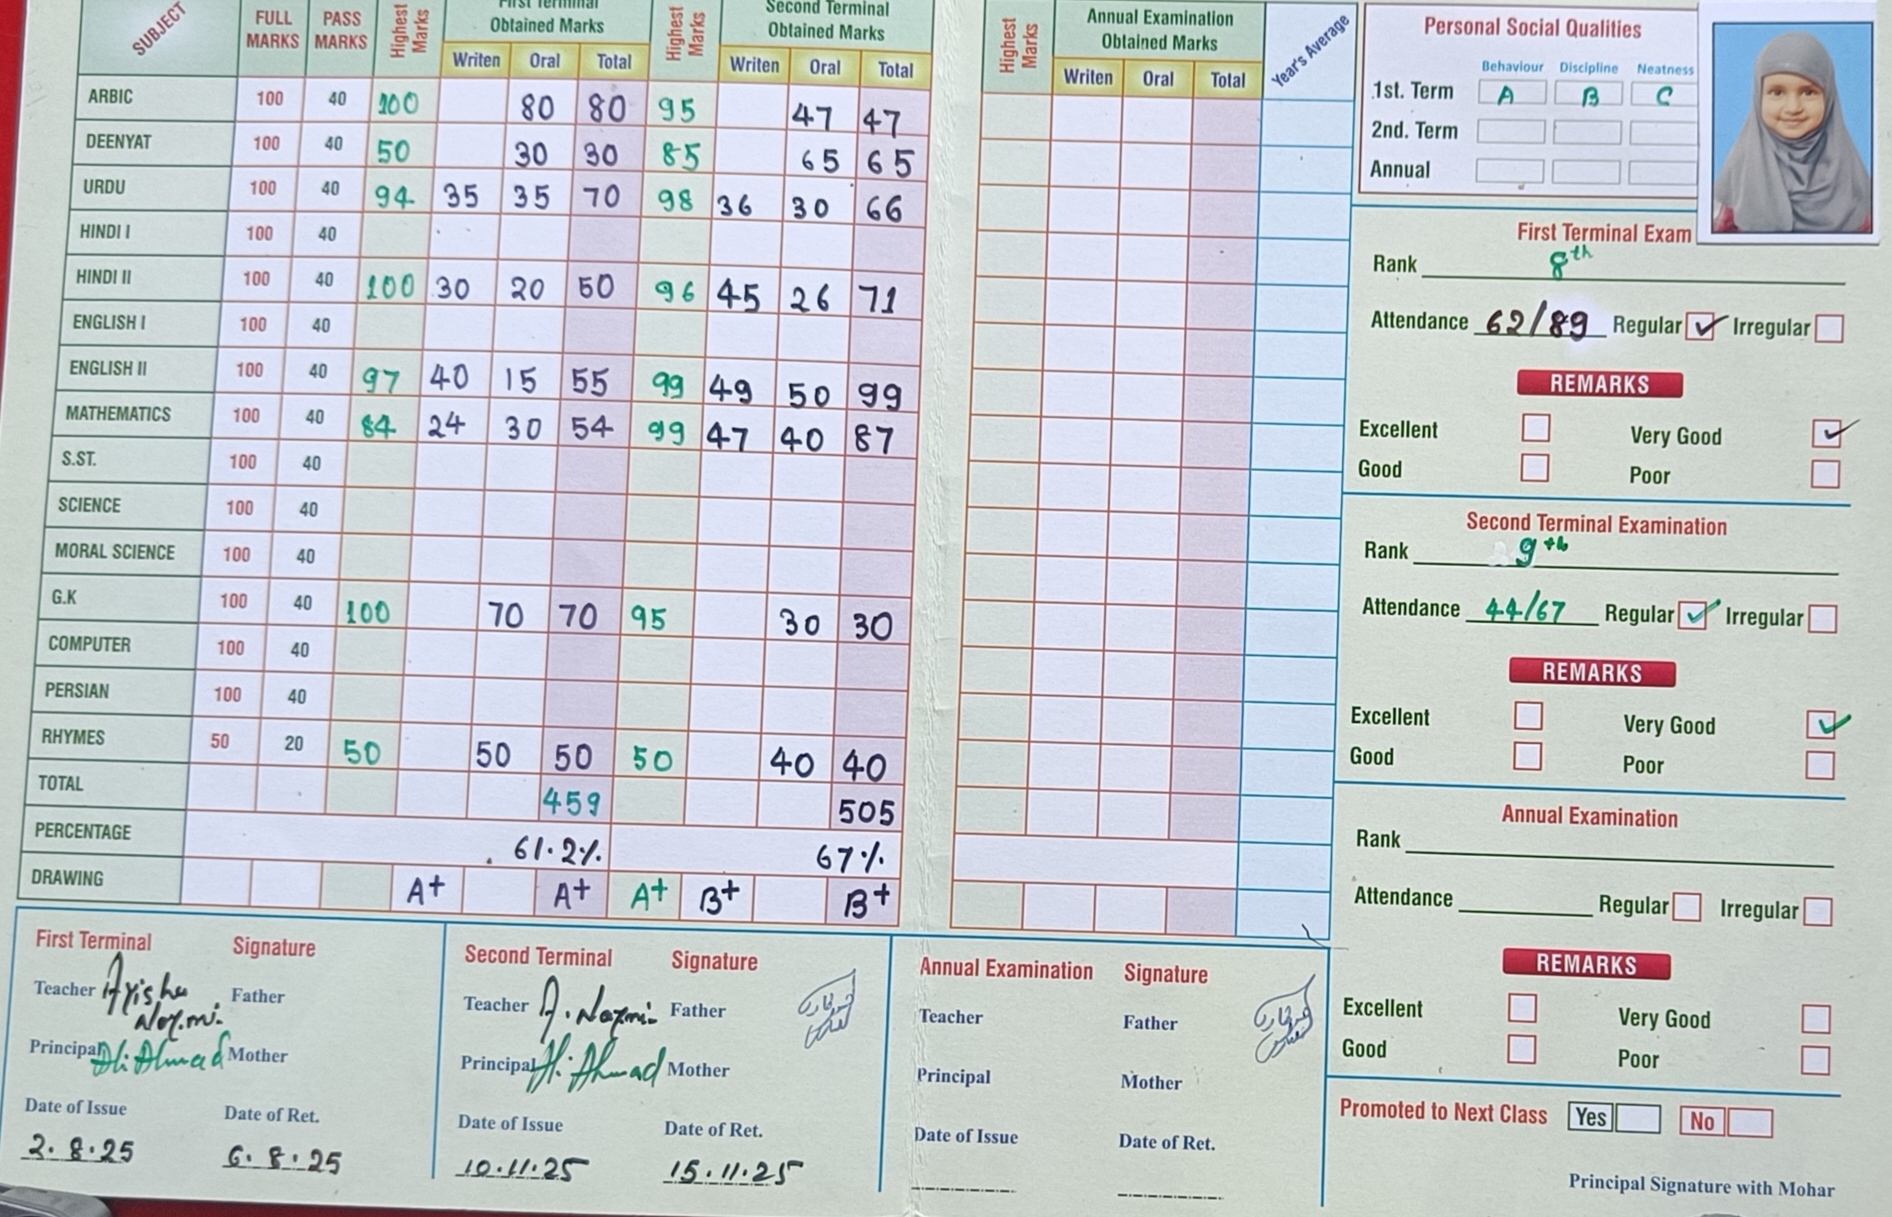 SUBJECT FULL MARKS PASS MARKS Highest Marks First Terminal Obtained Marks Highest Marks Second Terminal Obtained Marks Highest Marks Annual Examination Obtained Marks Year's Average
Writen Oral Total Writen Oral Total Writen Oral Total
ARBIC 100 40 100 80 80 95 47 47
DEENYAT 100 40 50 30 30 85 65 65
URDU 100 40 94 35 35 70 98 36 30 66
HINDI I 100 40
HINDI II 100 40 100 30 20 50 96 45 26 71
ENGLISH I 100 40
ENGLISH II 100 40 97 40 15 55 99 49 50 99
MATHEMATICS 100 40 84 24 30 54 99 47 40 87
S.ST. 100 40
SCIENCE 100 40
MORAL SCIENCE 100 40
G.K 100 40 100 70 70 95 30 30
COMPUTER 100 40
PERSIAN 100 40
RHYMES 50 20 50 50 50 50 40 40
TOTAL 459 505
PERCENTAGE 61.2% 67%
DRAWING A+ A+ A+ B+ B+
First Terminal Signature
Teacher Ayisha Nazmi. Father
Principal H. Ahmad Mother
Date of Issue Date of Ret.
2.8.25 6.8.25
Second Terminal Signature
Teacher A. Nazmi Father
Principal H. Ahmad Mother
Date of Issue Date of Ret.
10.11.25 15.11.25
Annual Examination Signature
Teacher Father
Principal Mother
Date of Issue Date of Ret.
Personal Social Qualities
Behaviour Discipline Neatness
1st. Term A B C
2nd. Term
Annual
First Terminal Exam
Rank 8th
Attendance 62/89 Regular ✓ Irregular
REMARKS
Excellent Very Good ✓
Good Poor
Second Terminal Examination
Rank 9th
Attendance 44/67 Regular ✓ Irregular
REMARKS
Excellent Very Good ✓
Good Poor
Annual Examination
Rank
Attendance Regular Irregular
REMARKS
Excellent Very Good
Good Poor
Promoted to Next Class Yes No
Principal Signature with Mohar